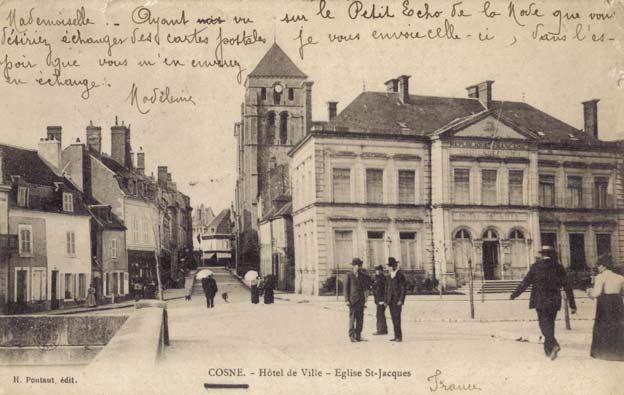 Mademoiselle. - Ayant vu sur le Petit Echo de la Mode que vous
désiriez échanger des cartes postales je vous envoie celle-ci, dans l'es-
poir que vous m'en enverrez
en échange.
Madeleine
REPUBLIQUE FRANCAISE
COSNE. - Hôtel de Ville - Eglise St-Jacques
H. Pontaut, édit.
France